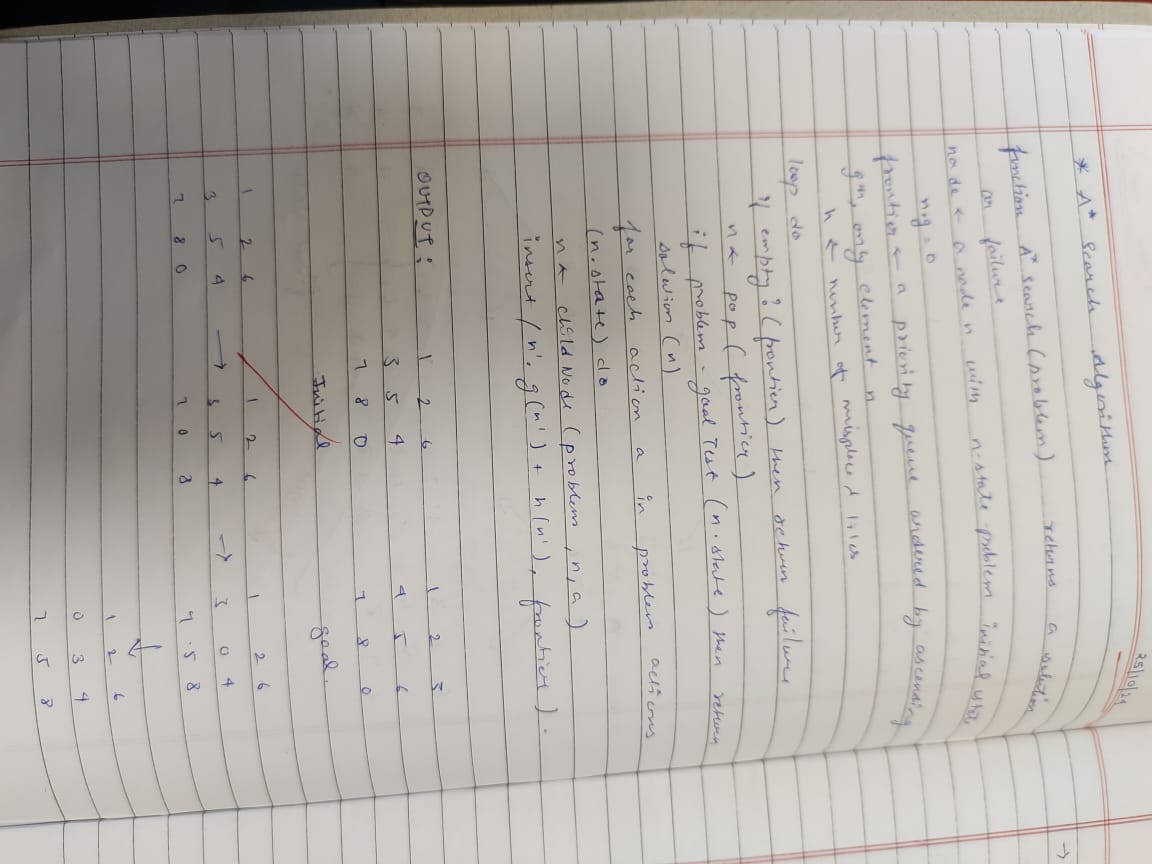 25/10/24
* A* Search Algorithm
function A* search (problem) returns a solution
or failure
node ← a node n with n.state = problem initial state
n.g = 0
frontier ← a priority queue ordered by ascending
g+h, only element n
h ← number of misplaced tiles
loop do
if empty? (frontier) then return failure
n ← pop (frontier)
if problem. goal Test (n.state) then return
solution (n)
for each action a in problem actions
(n.state) do
n ← childNode (problem, n, a)
insert (n', g(n') + h(n'), frontier).
OUTPUT: 1 2 6 1 2 3
3 5 4 4 5 6
7 8 0 7 8 0
Initial goal.
1 2 6 1 2 6 1 2 6
3 5 4 → 3 5 4 → 3 0 4
7 8 0 7 0 8 7 5 8
↓
1 2 6
0 3 4
7 5 8
→